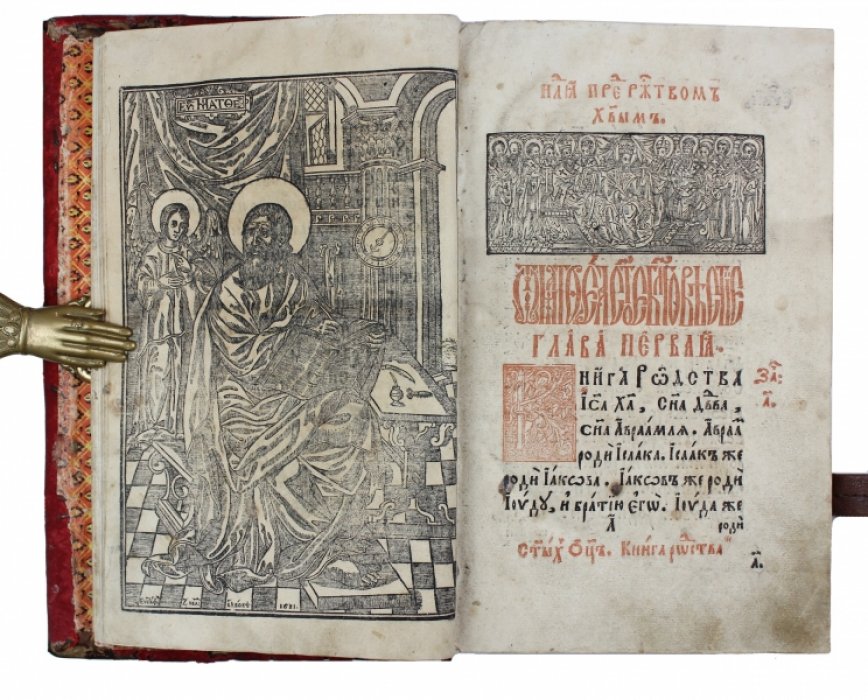 МАТѲЕ
1681
НДⷧ҇Ѧ ПРЕⷣ РЖⷭ҇ТВОМЪ
ХВ҃ЫМЪ.
ГЛАВА ПЕРВАѦ.
КНИГА РѠДСТВА
ЗАⷱ҇:
І҆С҃А ХА҃, СН҃А ДВ҃ДВА,
А҃.
СН҃А АВРААМЛѦ. АВРААⷨ
РОДЍ І҆СААКА. І҆СААКЪ ЖЕ
РОДЍ І҆АКѠВА. І҆АКѠВЪ ЖЕ РОДЍ
І҆ѸДУ, И҆ БРАТІЮ Е҆ГѠ̀. І҆ѸДА ЖЕ
А҃ РОДЍ
СТ҃ЫХ Ѻ҆Ц҃Ъ. КНИГА РѠⷭ҇ТВА
А҃.